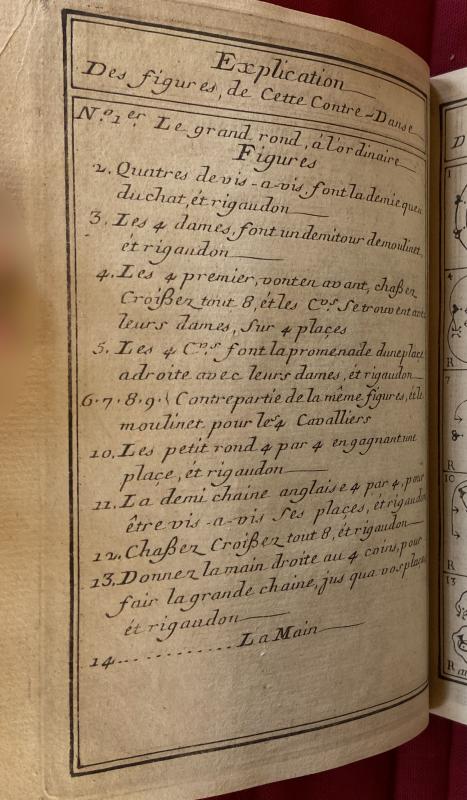 Explication
Des figures, de Cette Contre-Danse
N.º 1.er Le grand rond, à l'ordinaire
Figures
2. Quatres de vis-a-vis, font la demie queu
du chat, ét rigaudon
3. Les 4 dames, font un demi tour de moulinet,
ét rigaudon
4. Les 4 premier, vont en avant, chaßez
Croißez tout 8, ét les C.rs se trouvent
leurs dames, Sur 4 plaçes
5. Les 4 C.rs font la promenade dune place
a droite avec leurs dames, ét rigaudon
6.7.8.9. Contrepartie de la même figures, ét le
moulinet pour les 4 Cavalliers
10. Les petit rond 4 par 4 en gagnant une
plaçe, ét rigaudon
11. La demi chaine anglaise 4 par 4, pour
être vis-a-vis ses plaçes, ét rigaudon
12. Chaßez Croißez tout 8, ét rigaudon
13. Donnez la main droite au 4 coins, pour
fair la grande chaine, jus qua vos places
ét rigaudon
14............ La Main
D
1
4
R
7
R
10
R
13
R